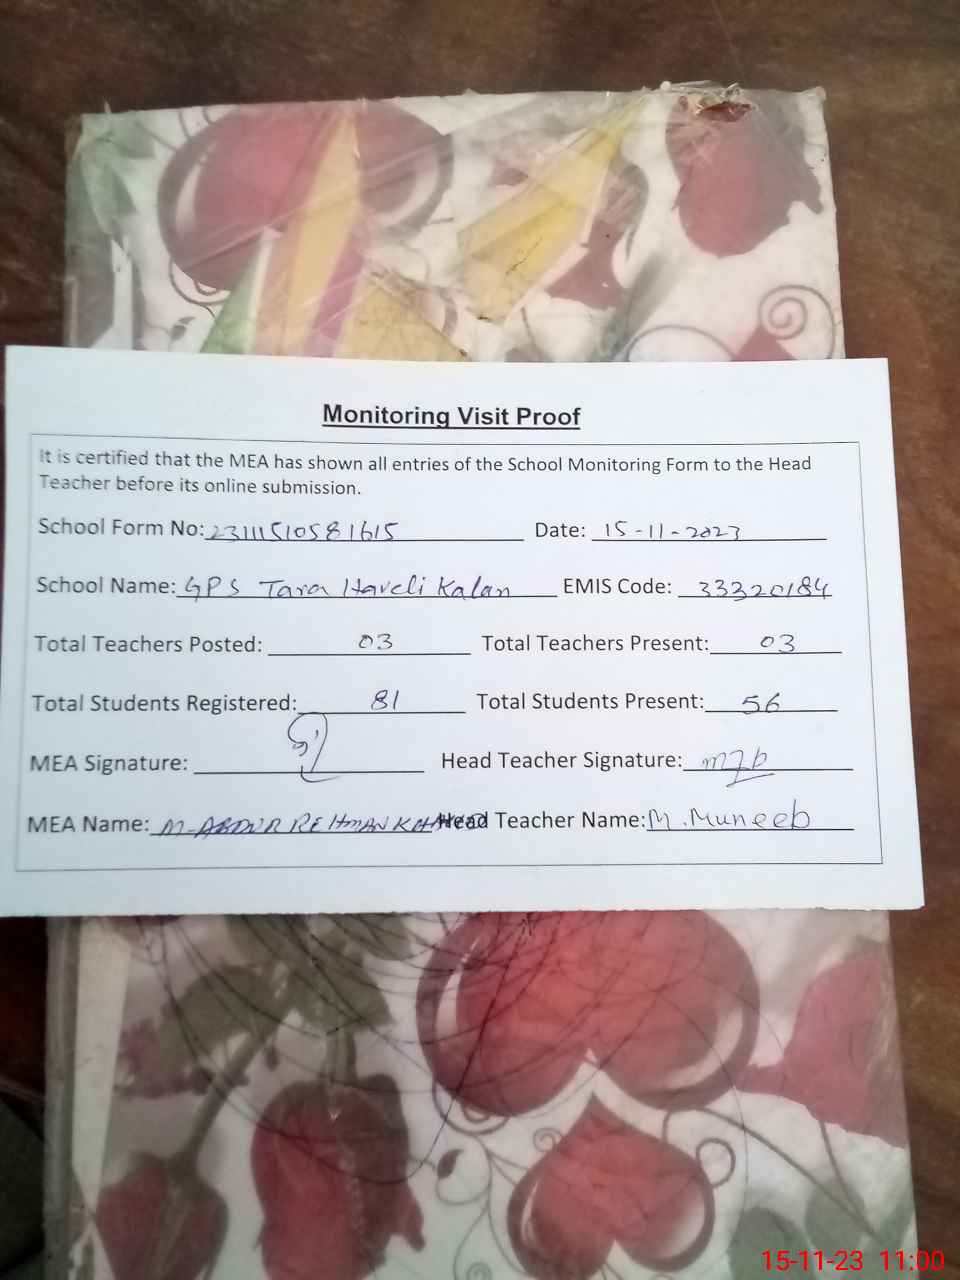 Monitoring Visit Proof
It is certified that the MEA has shown all entries of the School Monitoring Form to the Head
Teacher before its online submission.
School Form No: 23111510581615 Date: 15-11-2023
School Name: GPS Tara Haveli Kalan EMIS Code: 33320184
Total Teachers Posted: 03 Total Teachers Present: 03
Total Students Registered: 81 Total Students Present: 56
MEA Signature: Head Teacher Signature: MJb
MEA Name: M-ABDUR REHMAN KHAN Head Teacher Name: M.Muneeb
15-11-23 11:00